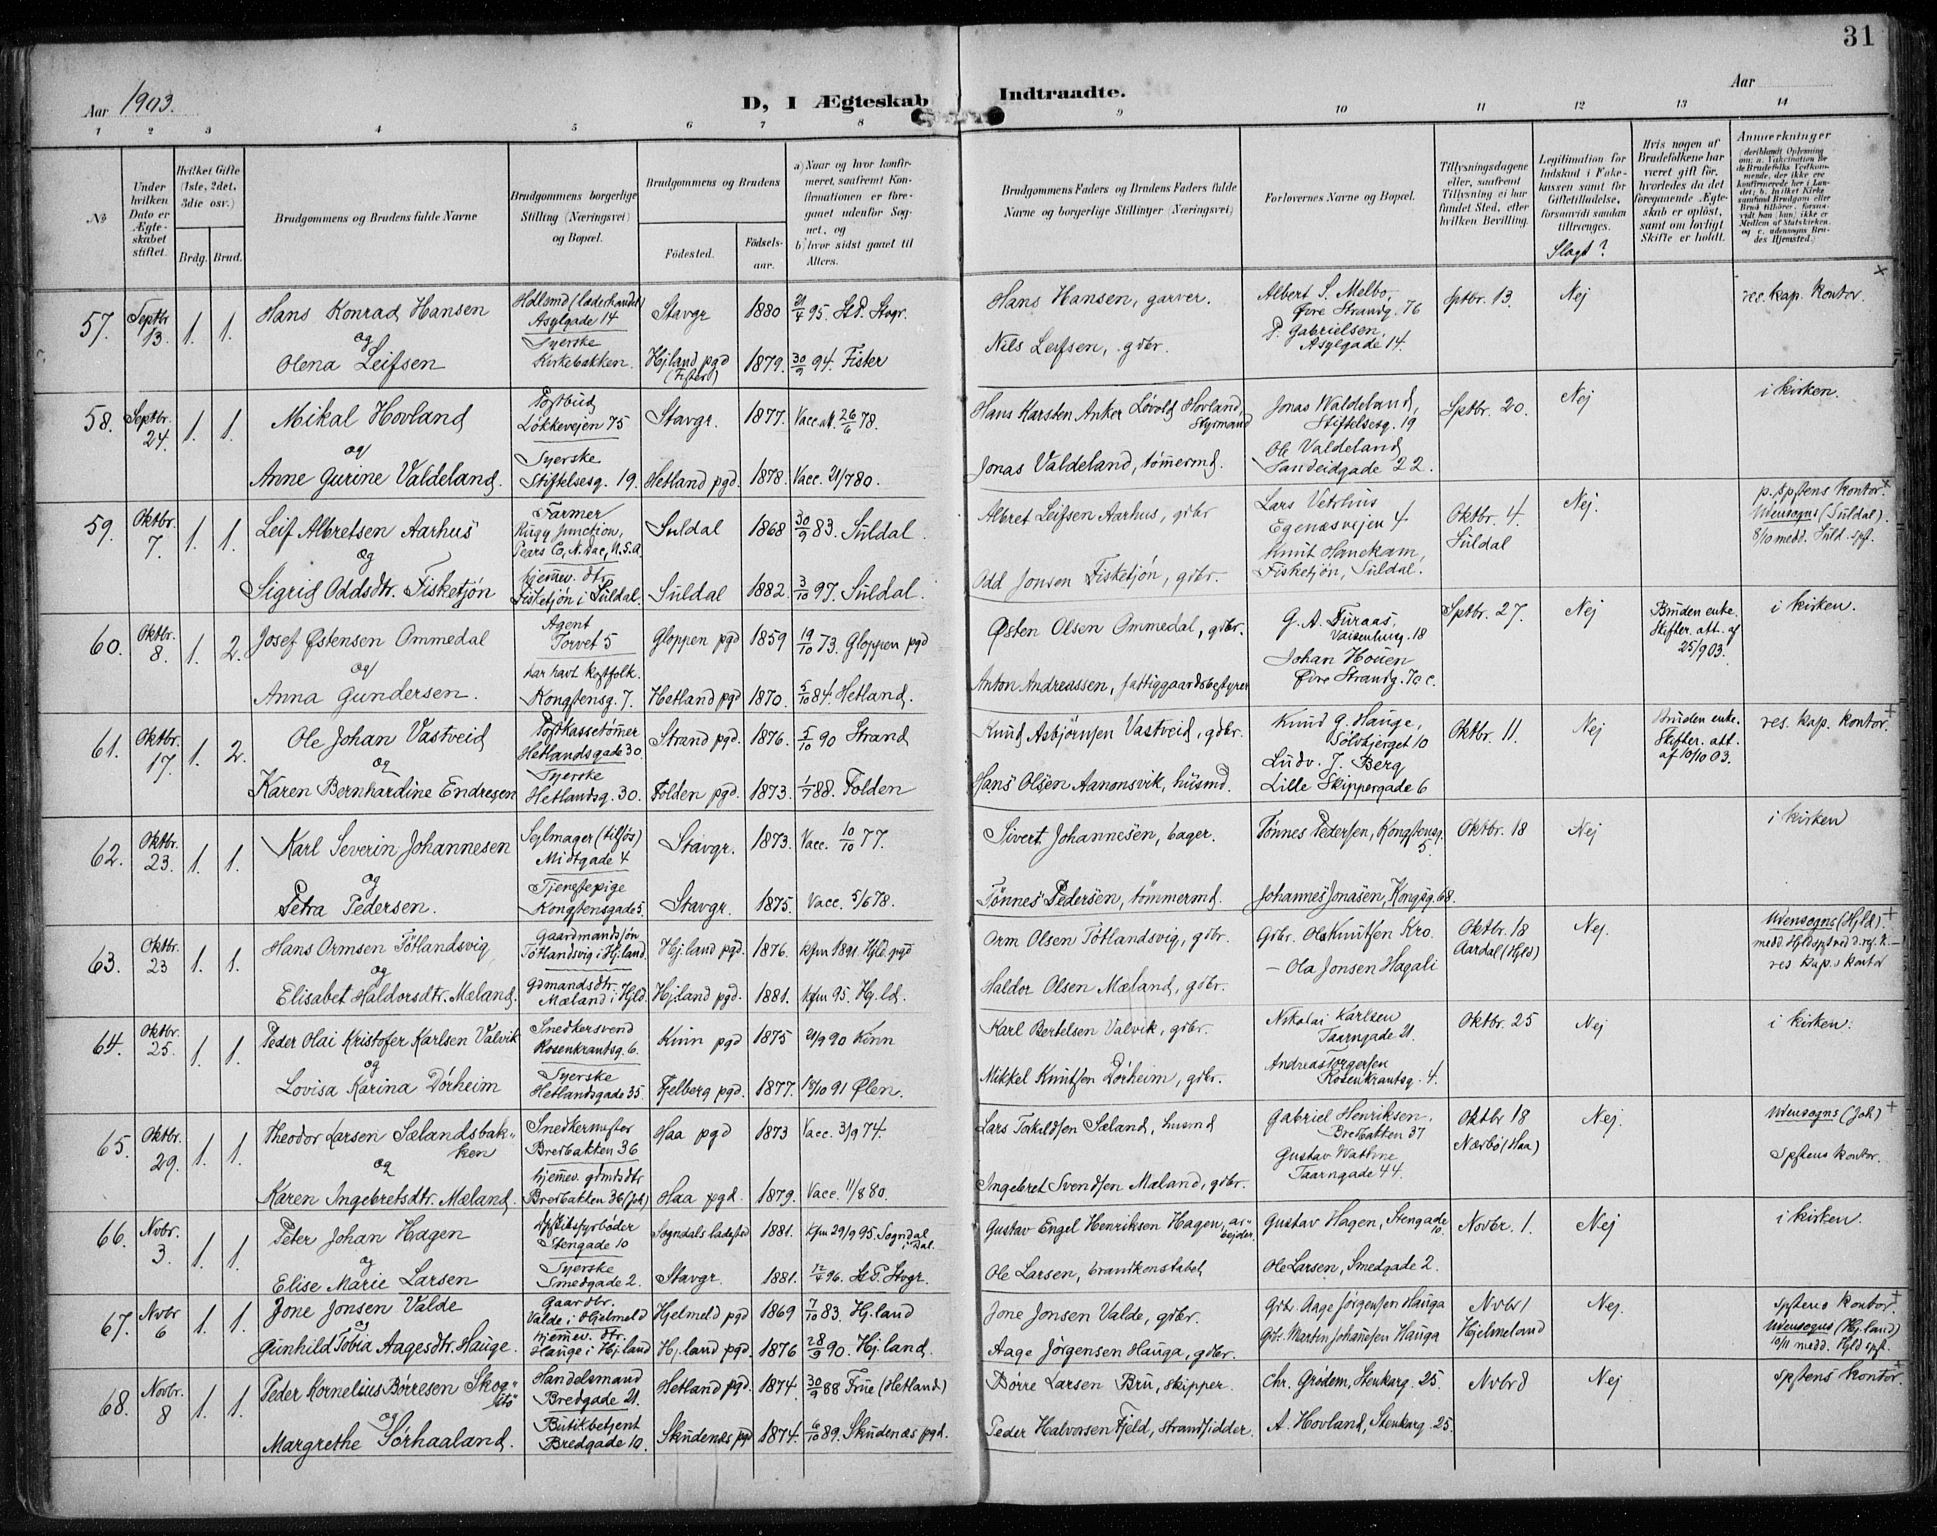 31
Aar 1903.
D, I Ægteskab Indtraadte.
Aar
1 2 3 4 5 6 7 8 9 10 11 12 13 14
No
Under hvilken Dato er Ægteskabet stiftet.
Hvilket Gifte (1ste, 2det, 3die osv.)
Brdg. Brud.
Brudgommens og Brudens fulde Navne
Brudgommens borgerlige Stilling (Næringsvei) og Bopæl.
Brudgommens og Brudens
Fødested.
Fødselsaar.
a) Naar og hvor konfirmeret, saafremt Konfirmationen er foregaaet udenfor Sognet, og
b) hvor sidst gaaet til Alters.
Brudgommens Faders og Brudens Faders fulde Navne og borgerlige Stillinger (Næringsvei)
Forlovernes Navne og Bopæl.
Tillysningsdagene eller, saafremt Tillysning ei har fundet Sted, efter hvilken Bevilling.
Legitimation for Indskud i Enkekassen samt for Giftetilladelse, forsaavidt saadan tiltrænges.
Slægt?
Hvis nogen af Brudefolkene har været gift før, hvorledes da det foregaaende Ægteskab er opløst, samt om lovligt Skifte er holdt.
Anmerkninger
57. Septbr 13. 1. 1. Hans Konrad Hansen
og
Olena Leifsen
Hdlsmd (læderhandel) Asylgade 14
Syerske Kirkebakken.
Stavgr 1880 21/4 95. St.P. Stvgr.
Hjland pgd (Fister) 1879. 30/9 94. Fister
Hans Hansen, garver.
Nils Leifsen, gdbr.
Albert S. Melbo, Øvre Strandg. 76
P. Gabrielsen, Asylgade 14.
Sptbr. 13. Nej res. kap. kontor. ×
58. Septbr. 24. 1. 1. Mikal Hovland
og
Anne Gurine Valdeland.
Postbud Løkkevejen 75
Syerske Stiftelsesg. 19.
Stavgr. 1877. Vacc.at. 26/6 78.
Hetland pgd. 1878. Vacc. 21/7 80.
Hans Karsten Anker Løvold Hovland, Styrmand
Jonas Valdeland, tømermd.
Jonas Waldeland, Stiftelsesg. 19
Ole Valdeland Sandeidgade 22.
Sptbr. 20. Nej i kirken.
59. Oktbr. 7. 1. 1. Leif Albretsen Aarhus
og
Sigrid Oddsdtr. Fisketjøn
Farmer Rugg Junction, Pears Co, N. Dac, U.S.A.
hjemmev. dtr. Fisketjøn i Suldal.
Suldal 1868 30/9 83. Suldal.
Suldal 1882. 3/10 97. Suldal.
Albret Leifsen Aarhus, gdbr
Odd Jonsen Fisketjøn, gdbr.
Lars Vetrhus Egenæsvejen 4
Knut Hanekam, Fisketjøn, Suldal.
Oktbr. 4. Suldal Nej.
p. spstens kontor. ×
Udensogns (Suldal).
8/10 medd. Suld. spf.
60. Oktbr. 8. 1. 2. Josef Østensen Ommedal
og
Anna Gundersen.
Agent Torvet 5
har havt kostfolk. Kongstensg. 7.
Gloppen pgd 1859 19/10 73. Gloppen pgd
Hetland pgd 1870. 5/10 84. Hetland.
Østen Olsen Ommedal, gdbr.
Anton Andreassen, fattiggaardsbestyrer
G. A. Furaas, Vaisenhusg. 18
Johan Houen Øvre Strandg. 70 c.
Sptbr. 27. Nej
Bruden enke. Skifter. att. af 25/9 03.
i kirken.
61. Oktbr. 17. 1. 2. Ole Johan Vastveid
og
Karen Bernhardine Endresen
Postkassetømmer Hetlandsgade 30
Syerske Hetlandsg. 30.
Strand pgd. 1876. 5/10 90 Strand
Folden pgd. 1873. 1/7 88. Folden
Knud Asbjørnsen Vastveid, gdbr.
Hans Olsen Aanonsvik, husmd.
Knud G. Hauge, Sølvbjerget 10
Ludv. J. Berg Lille Skippergade 6
Oktbr. 11. Nej
Bruden enke. Skifter. att. af 10/10 03.
res. kap. kontor +
62. Oktbr. 23. 1. 1. Karl Severin Johannesen
og
Petra Pedersen.
Sejlmager (tilsjøs) Midtgade 4
Tjenestepige Kongstensgade 5.
Stavgr. 1873. Vacc. 10/10 77.
Stavgr. 1875. Vacc. 5/6 78.
Sivert Johannesen, bager.
Tønnes Pedersen, tømmermd.
Tønnes Pedersen, Kongstensg. 5.
Johannes Jonasen, Kongsg. 68.
Oktbr. 18 Nej i kirken
63. Oktbr. 23 1. 1. Hans Ormsen Tøtlandsvig
og
Elisabet Haldorsdtr. Mæland.
Gaardmandssøn Tøtlandsvig i Hjland.
Gdmandsdtr. Mæland i Hjld.
Hjland pgd. 1876. kfm 1891 Hjld. pgd
Hjland pgd. 1881. kfm 95. Hjld.
Orm Olsen Tøtlandsvig, gdbr.
Haldor Olsen Mæland, gdbr.
Gdbr. Ola Knutsen Kro
— Ola Jonsen Hagali
Oktbr. 18 Aardal (Hjld) Nej.
Udensogns (Hjld) +
res kap.s kontor
64. Oktbr. 25. 1. 1. Peder Olai Kristofer Karlsen Valvik
og
Lovisa Karina Dørheim
Snedkersvend Rosenkrantsg. 6.
Syerske Hetlandsgade 35
Kinn pgd 1875 21/9 90 Kinn
Fjelberg pgd. 1877. 18/10 91 Ølen.
Karl Bertelsen Valvik, gdbr.
Mikkel Knutsen Dørheim, gdbr.
Nikolai Karlsen Taarngade 21.
Andreas Torgersen Rosenkrantsg. 4.
Oktbr. 25 Nej i kirken.
65. Oktbr. 29. 1. 1. Theodor Larsen Sælandsbakken
og
Karen Ingebretsdtr. Mæland.
Snedkermester Bredbakken 36
hjemmev. gdmdsdtr Bredbakken 36 (Joh)
Haa pgd 1873 Vacc. 3/9 74.
Haa pgd. 1879. Vacc. 11/8 80.
Lars Torkildsen Sæland, husmd
Ingebret Svendsen Mæland, gdbr.
Gabriel Henriksen, Bredbakken 37
Gustav Wathne Taarngade 44.
Oktbr 18 Nærbø (Haa) Nej.
Udensogns (Joh) +
Spstens kontor.
66. Novbr. 3. 1. 1. Peter Johan Hagen
og
Elise Marie Larsen
Stengade 10
Syerske Smedgade 2.
Sogndals ladested 1881. kfm 29/9 95. Sogndal i Dal.
Stavgr. 1881. 12/4 96. St.P. Stvgr.
Gustav Engel Henriksen Hagen, arbejder.
Ole Larsen, brandkonstabel
Gustav Hagen, Stengade 10.
Ole Larsen, Smedgade 2.
Novbr. 1. Nej i kirken.
67. Nvbr 6 1. 1. Jone Jonsen Valde
og
Gunhild Tobia Aagesdtr. Hauge.
Gaardbr. Valde i Hjelmeld
hjemmev. dtr. Hauge i Hjland
Hjelmeld pgd 1869 7/10 83. Hjland
Hjland pgd. 1876 28/9 90. Hjland.
Jone Jonsen Valde, gdbr.
Aage Jørgensen Hauga, gdbr.
Gdbr. Aage Jørgensen Hauga
Gdbr. Martin Johannesen Hauga
Nvbr 1 Hjelmeland Nej.
Spstens kontor. +
Udensogns (Hjland)
10/11 medd. Hjld spf.
68. Novbr. 8 1. 1. Peder Kornelius Børresen Skog
og
Margrethe Sørhaaland.
Handelsmand Bredgade 21.
Butikbetjent Bredgade 10.
Hetland pgd. 1874. 30/9 88 Frue (Hetland)
Skudenæs pgd 1874. 6/10 89. Skudenæs pgd.
Børre Larsen Bru, skipper.
Peder Halvorsen Fjeld, strandsidder.
Chr. Grødem, Stenkarg. 25.
A. Hovland, Stenkarg. 25
Nvbr 8 Nej Spstens kontor. +